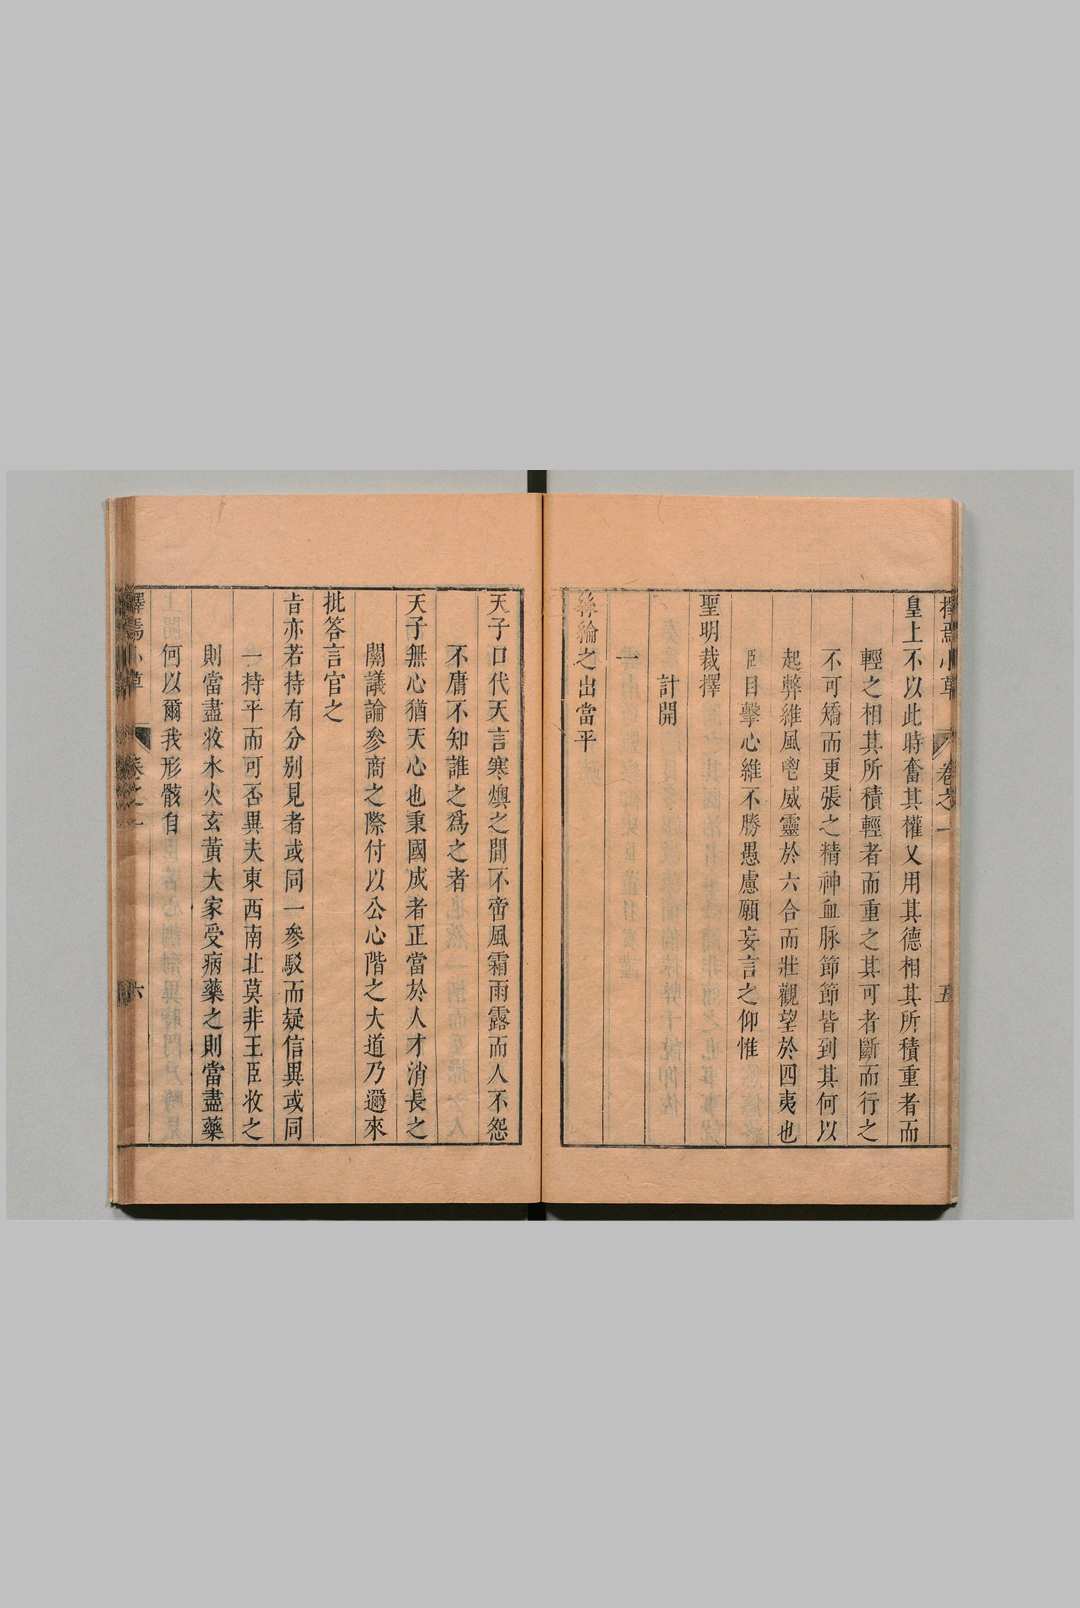 擇焉小草 卷之一 五
皇上不以此時奮其權又用其德相其所積重者而
輕之相其所積輕者而重之其可者斷而行之
不可矯而更張之精神血脉節節皆到其何以
起弊維風鬯威靈於六合而壯觀望於四夷也
臣目擊心維不勝愚慮願妄言之仰惟
聖明裁擇
計開
一
絲綸之出當平
天子口代天言寒燠之間不啻風霜雨露而人不怨
不庸不知誰之爲之者
天子無心猶天心也秉國成者正當於人才消長之
關議論參商之際付以公心階之大道乃邇來
批答言官之
旨亦若持有分別見者或同一參駁而疑信異或同
一持平而可否異夫東西南北莫非王臣收之
則當盡收水火玄黃大家受病藥之則當盡藥
何以爾我形骸自
擇焉小草 卷之一 六